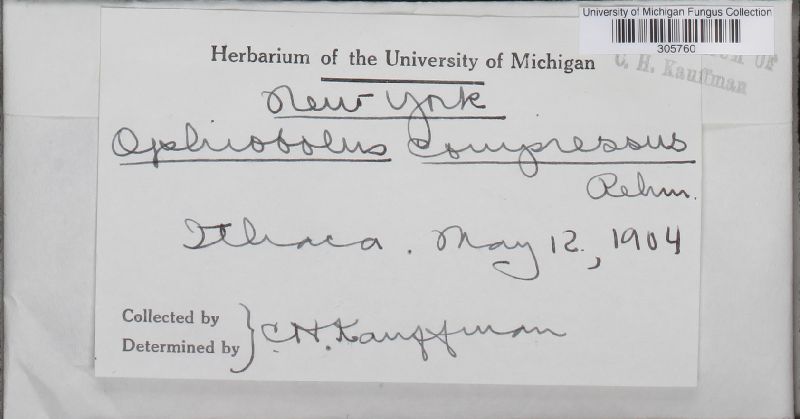 University of Michigan Fungus Collection
305760
OF
C. H. Kauffman
Herbarium of the University of Michigan
New York
Ophiobolus Compressus
Rehm.
Ithaca. May 12, 1904
Collected by
Determined by
C.H. Kauffman